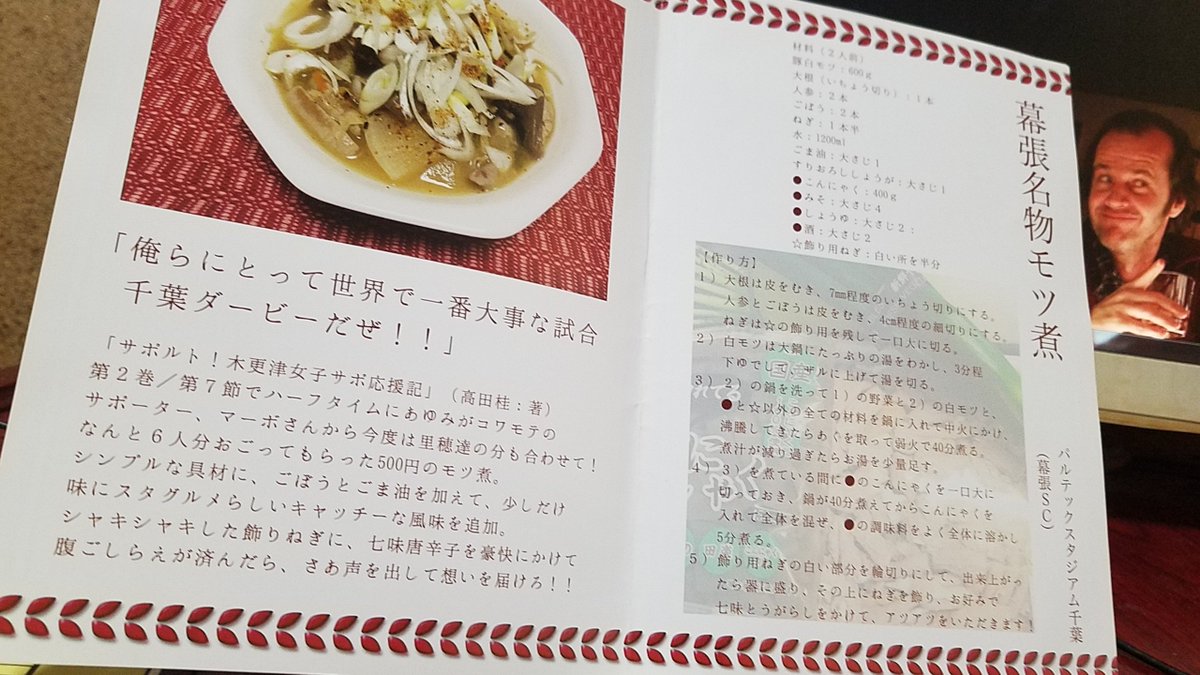 「俺らにとって世界で一番大事な試合
千葉ダービーだぜ！！」
「サポルト！木更津女子サポ応援記」（高田桂：著）
第２巻／第７節でハーフタイムにあゆみがコワモテの
サポーター、マーボさんから今度は里穂達の分も合わせて！
なんと６人分おごってもらった500円のモツ煮。
シンプルな具材に、ごぼうとごま油を加えて、少しだけ
味にスタグルメらしいキャッチーな風味を追加。
シャキシャキした飾りねぎに、七味唐辛子を豪快にかけて
腹ごしらえが済んだら、さあ声を出して想いを届けろ！！
幕張名物モツ煮
パルテックスタジアム千葉
（幕張SC）
材料（２人前）
豚白モツ：600ｇ
大根（いちょう切り）：１本
人参：２本
ごぼう：２本
ねぎ：１本半
水：1200ml
ごま油：大さじ１
すりおろししょうが：大さじ１
●こんにゃく：400ｇ
●みそ：大さじ４
●しょうゆ：大さじ２：
●酒：大さじ２
☆飾り用ねぎ：白い所を半分
【作り方】
１）大根は皮をむき、7㎜程度のいちょう切りにする。
人参とごぼうは皮をむき、4㎝程度の細切りにする。
ねぎは☆の飾り用を残して一口大に切る。
２）白モツは大鍋にたっぷりの湯をわかし、3分程
下ゆでしてザルに上げて湯を切る。
３）２）の鍋を洗って１）の野菜と２）の白モツと、
●と☆以外の全ての材料を鍋に入れて中火にかけ、
沸騰してきたらあくを取って弱火で40分煮る。
煮汁が減り過ぎたらお湯を少量足す。
４）３）を煮ている間に●のこんにゃくを一口大に
切っておき、鍋が40分煮えてからこんにゃくを
入れて全体を混ぜ、●の調味料をよく全体に溶かし
5分煮る。
５）飾り用ねぎの白い部分を輪切りにして、出来上がっ
たら器に盛り、その上にねぎを飾り、お好みで
七味とうがらしをかけて、アツアツをいただきます！